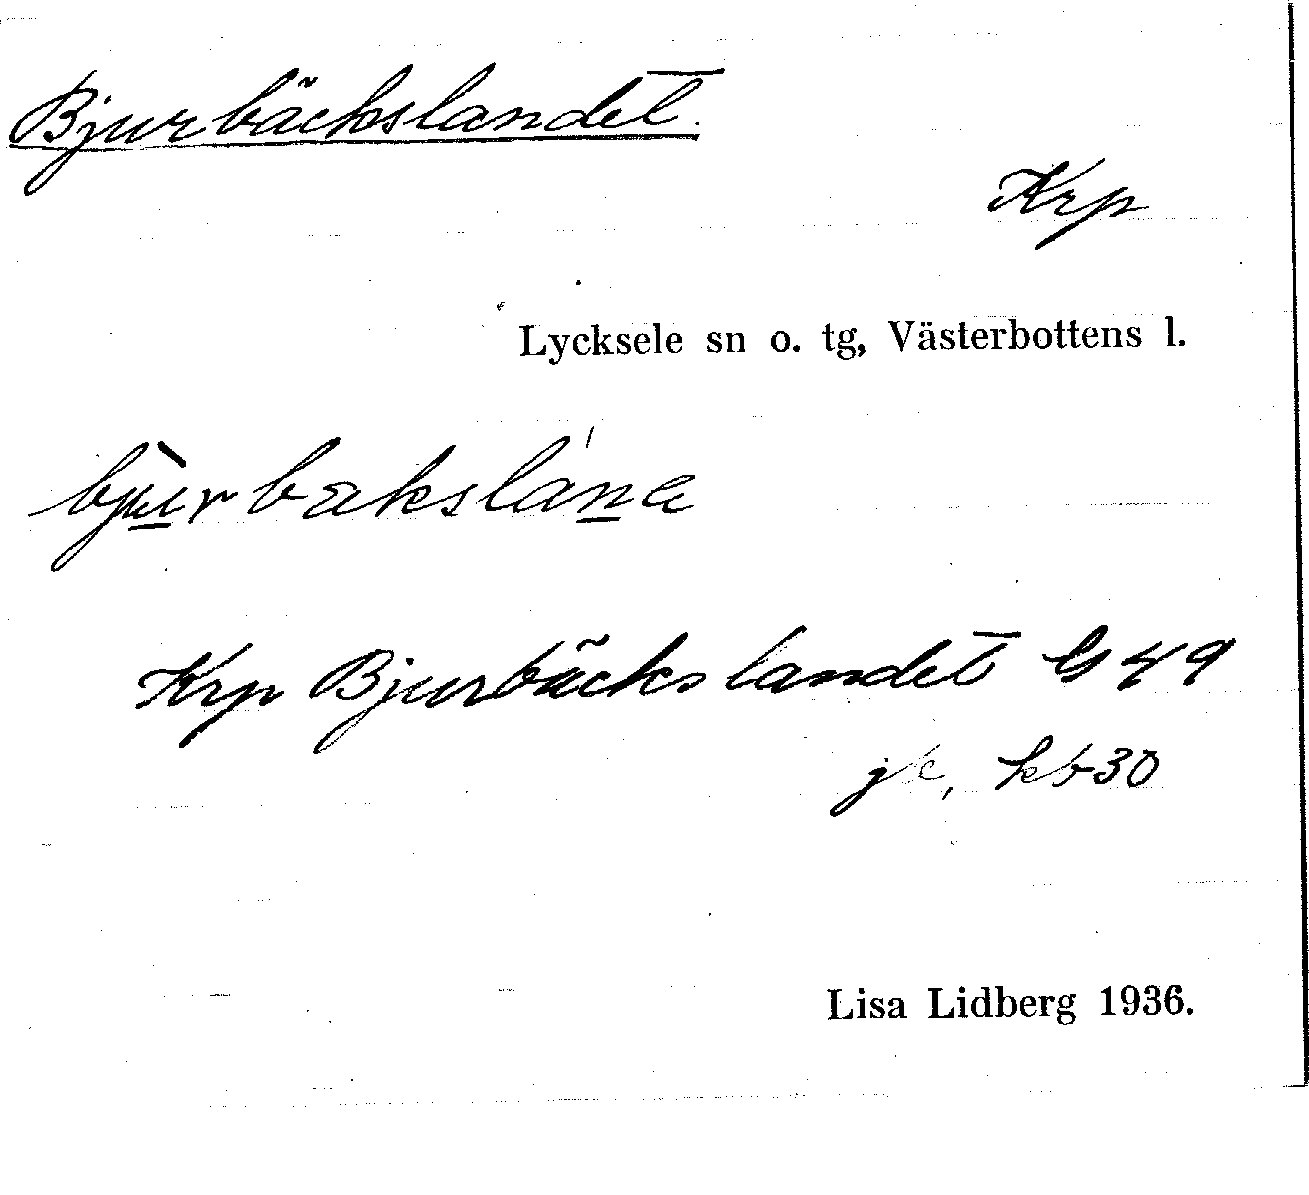 Bjurbäckslandet.
Krp
Lycksele sn o. tg, Västerbottens l.
bjùrbäkslánɐ
Krp Bjurbäckslandet G 49
jk, kb 30
Lisa Lidberg 1936.